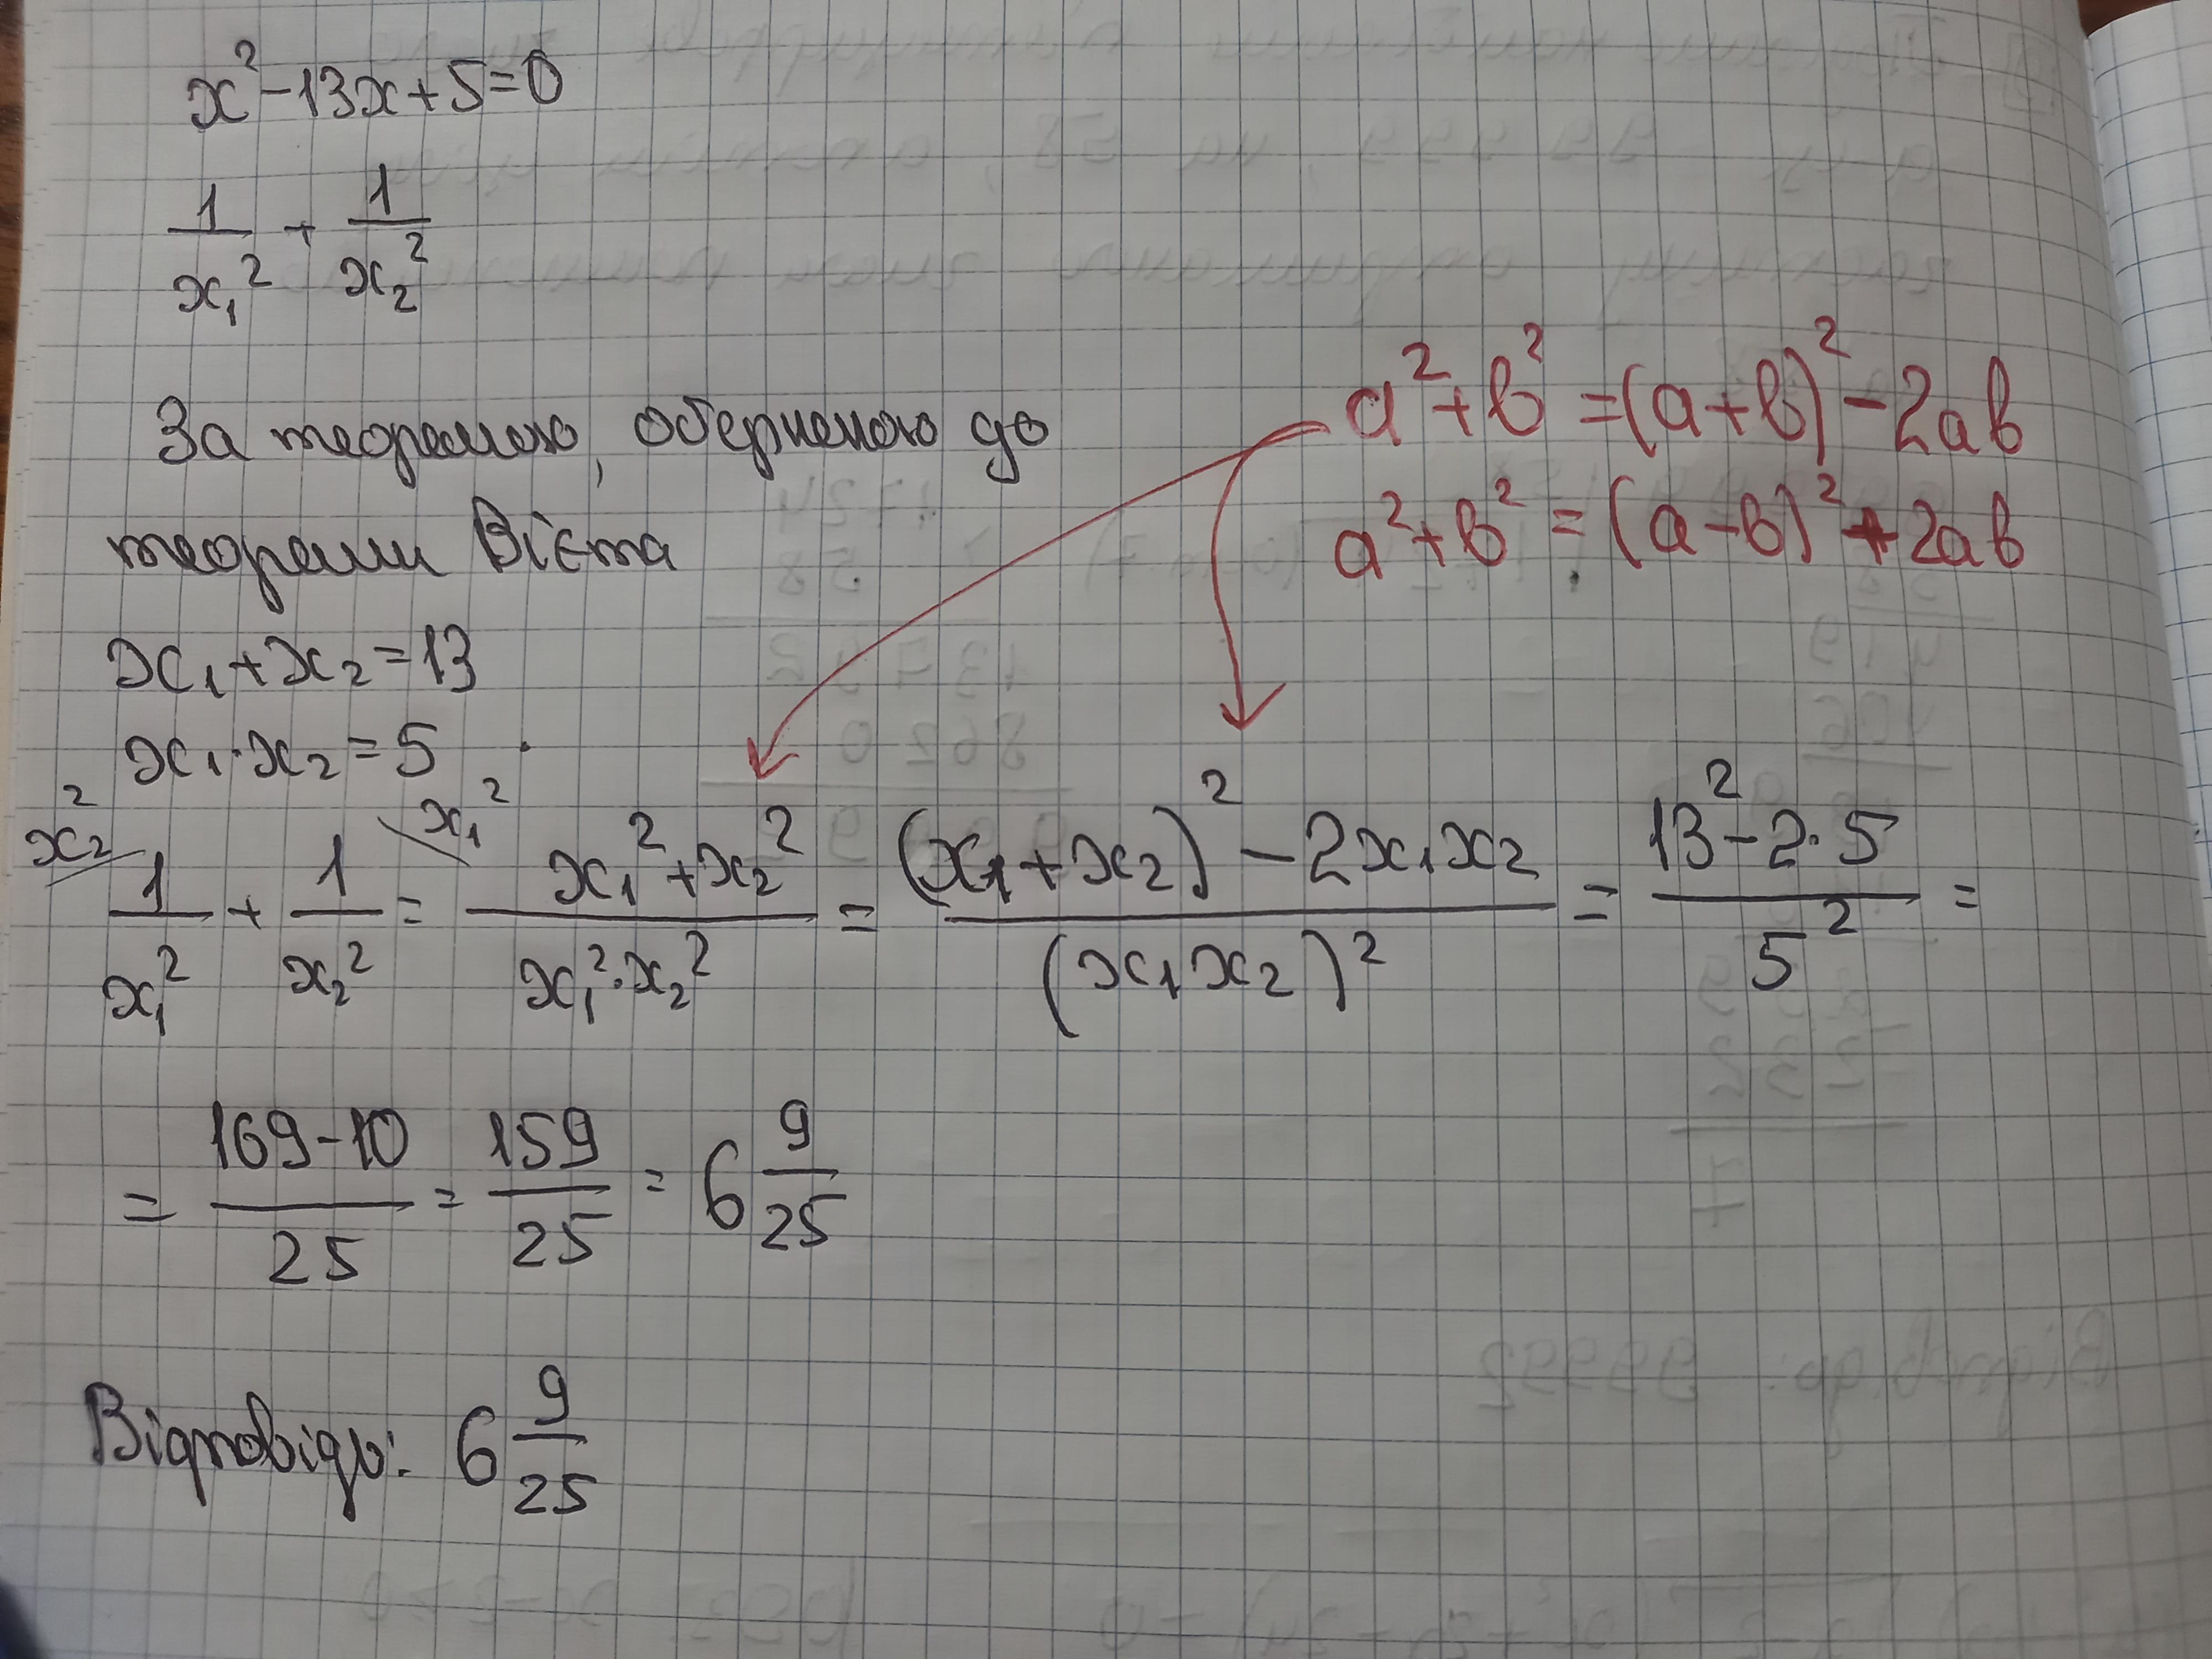 x² - 13x + 5 = 0
1/x₁² + 1/x₂²
За теоремою, оберненою до
теореми Вієта
a² + b² = (a + b)² - 2ab
a² + b² = (a - b)² + 2ab
x₁ + x₂ = 13
x₁ · x₂ = 5
x₂² x₁²
1/x₁² + 1/x₂² = (x₁² + x₂²)/(x₁² · x₂²) = ((x₁ + x₂)² - 2x₁x₂)/(x₁x₂)² = (13² - 2 · 5)/5² =
= (169 - 10)/25 = 159/25 = 6 9/25
Відповідь: 6 9/25